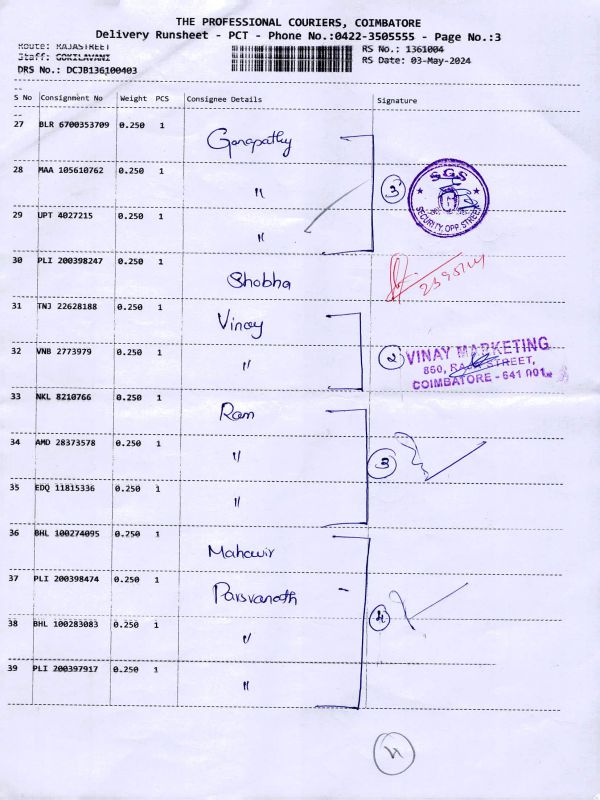 THE PROFESSIONAL COURIERS, COIMBATORE
Delivery Runsheet - PCT - Phone No.:0422-3505555 - Page No.:3
Route: RAJASTREET
RS No.: 1361004
Staff: GOKILAVANI
RS Date: 03-May-2024
DRS No.: DCJB136100403
--
S No Consignment No Weight PCS Consignee Details Signature
--
27 BLR 6700353709 0.250 1 Ganapathy
28 MAA 105610762 0.250 1 "
3
SGS
SECURITY, OPP. STREET
29 UPT 4027215 0.250 1 "
30 PLI 200398247 0.250 1 Shobha
31 TNJ 22628188 0.250 1 Vinay
32 VNB 2773979 0.250 1 "
2
VINAY MARKETING
860, RAJA STREET,
COIMBATORE - 641 001.
33 NKL 8210766 0.250 1 Ram
34 AMD 28373578 0.250 1 "
3
35 EDQ 11815336 0.250 1 "
36 BHL 100274095 0.250 1 Mahavir
37 PLI 200398474 0.250 1 Parsvanath -
4
38 BHL 100283083 0.250 1 "
39 PLI 200397917 0.250 1 "